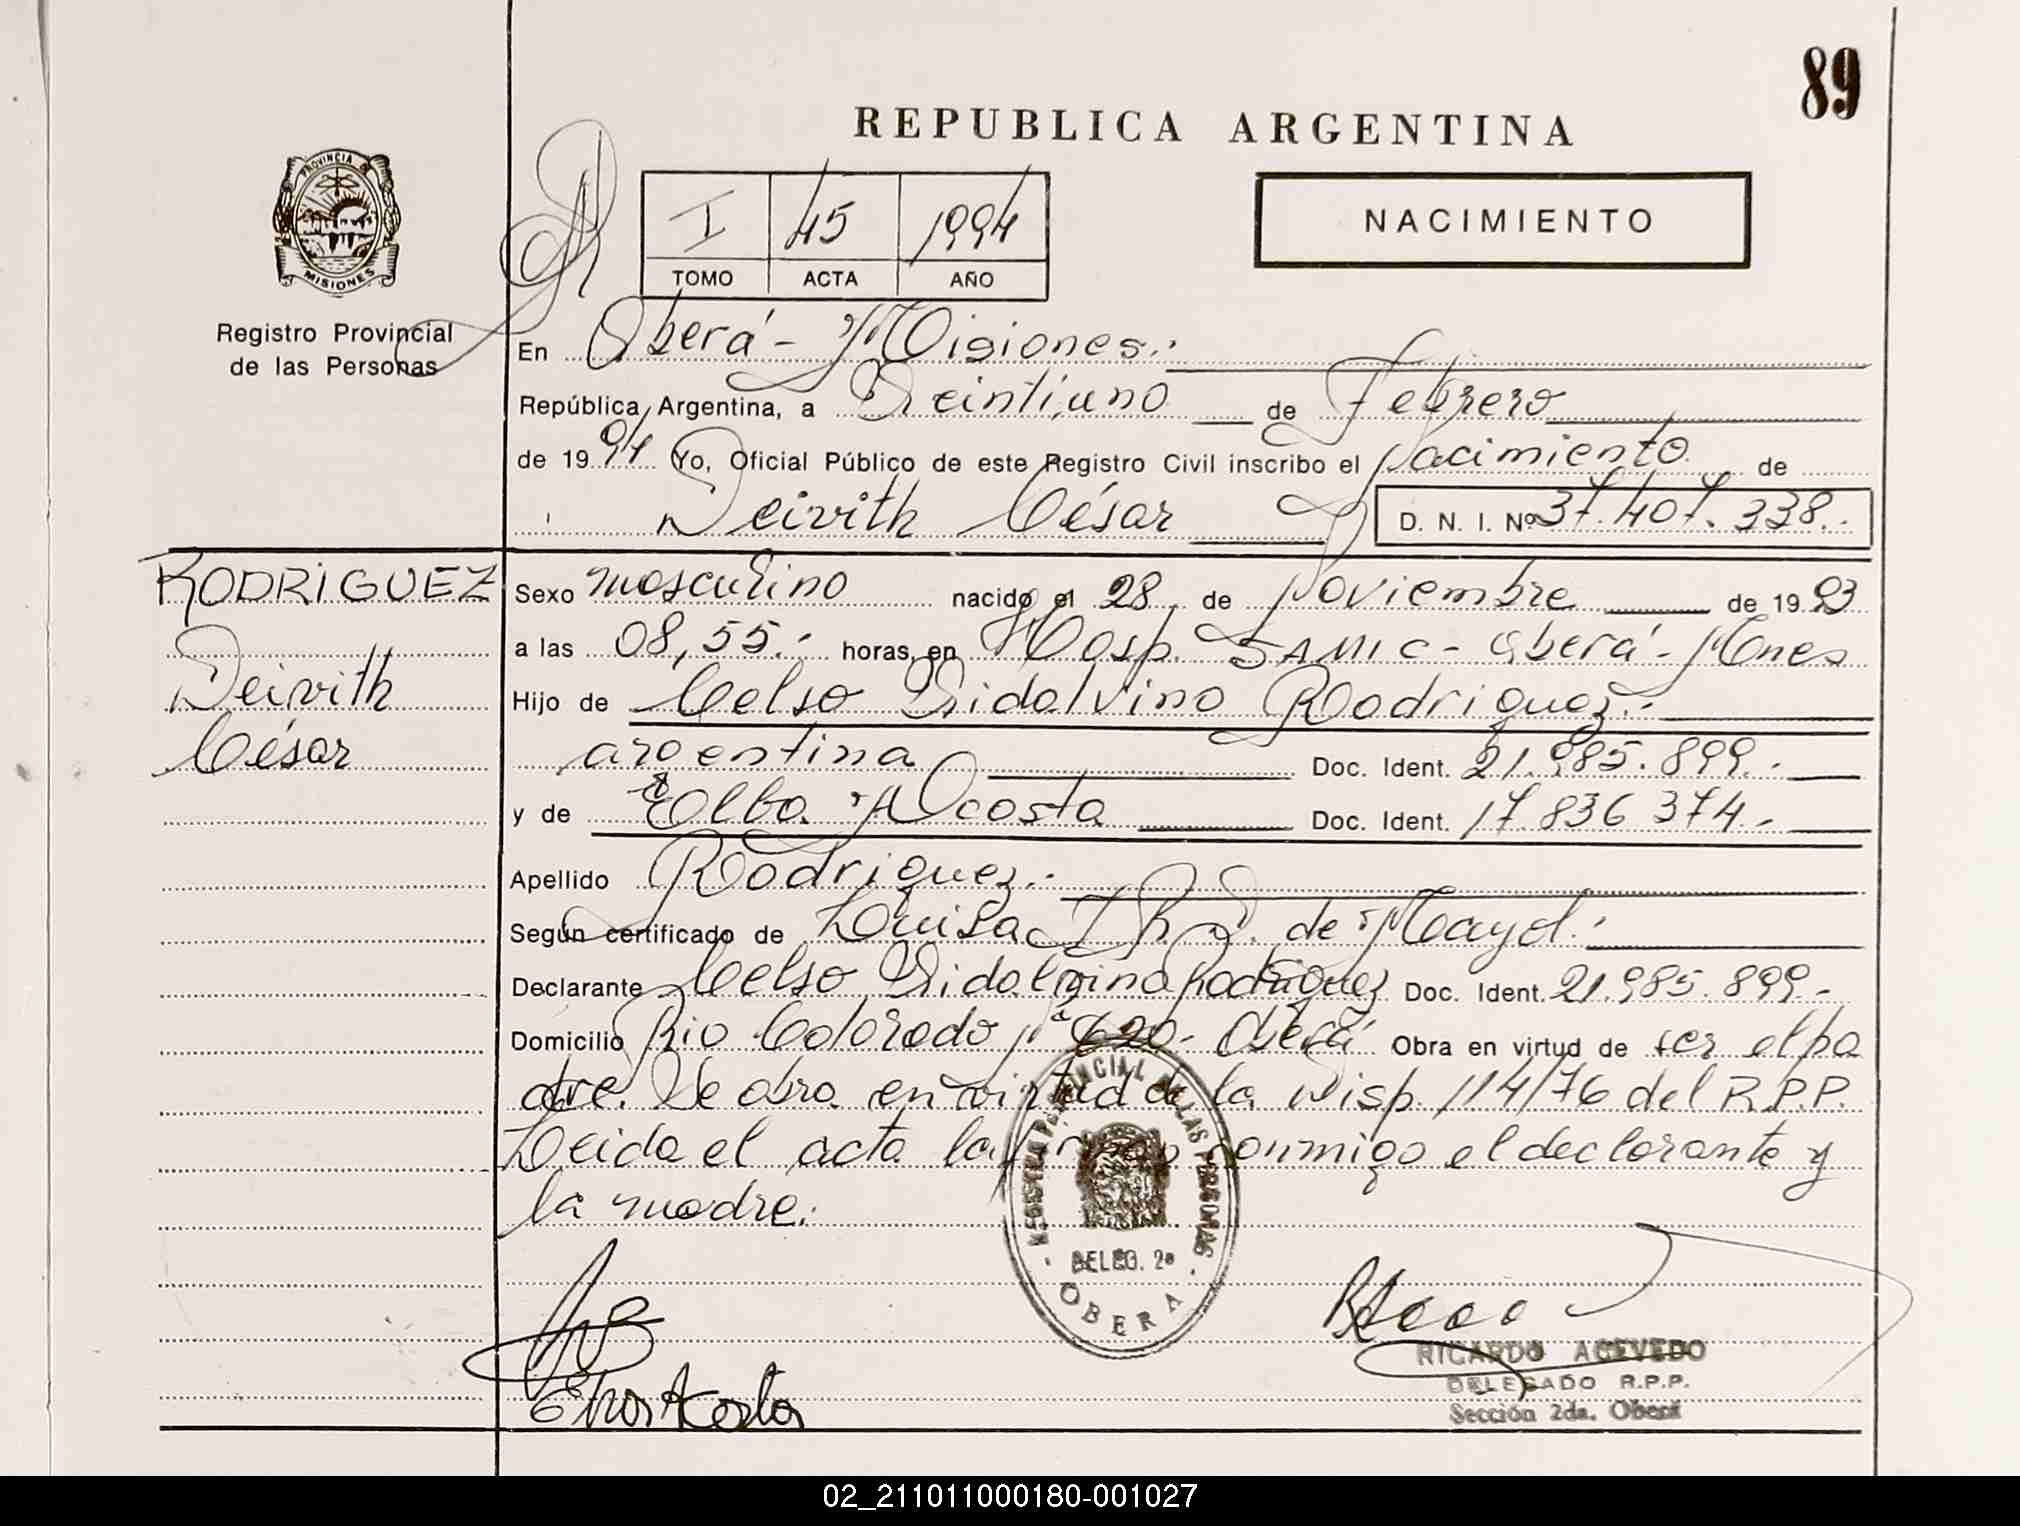 89
REPUBLICA ARGENTINA
PROVINCIA DE
MISIONES
Registro Provincial
de las Personas
I 45 1994
TOMO ACTA AÑO
NACIMIENTO
En Oberá - Misiones.-
República Argentina, a Veintiuno de Febrero
de 1994 Yo, Oficial Público de este Registro Civil inscribo el Nacimiento de
Deivith César D. N. I. Nº 37.407.338.-
RODRIGUEZ
Deivith
César
Sexo masculino nacido el 28 de Noviembre de 1993
a las 08,55.- horas, en Hosp. SAMIC - Oberá - Mnes
Hijo de Celso Vidalvino Rodriguez.-
argentina Doc. Ident. 21.985.899.-
y de Elba Acosta Doc. Ident. 17.836.374.-
Apellido Rodriguez.-
Según certificado de Luisa de Mayol.-
Declarante Celso Vidalvino Rodriguez Doc. Ident. 21.985.899.-
Domicilio Rio Colorado Nº 620 - Oberá Obra en virtud de ser el pa
dre. Se obra en virtud de la Disp. 114/76 del R.P.P.
Leida el acta la firman conmigo el declarante y
la madre.-
REGISTRO PROVINCIAL DE LAS PERSONAS
DELEG. 2ª
OBERA
Acosta
RICARDO ACEVEDO
DELEGADO R.P.P.
Sección 2da. Oberá
02_211011000180-001027